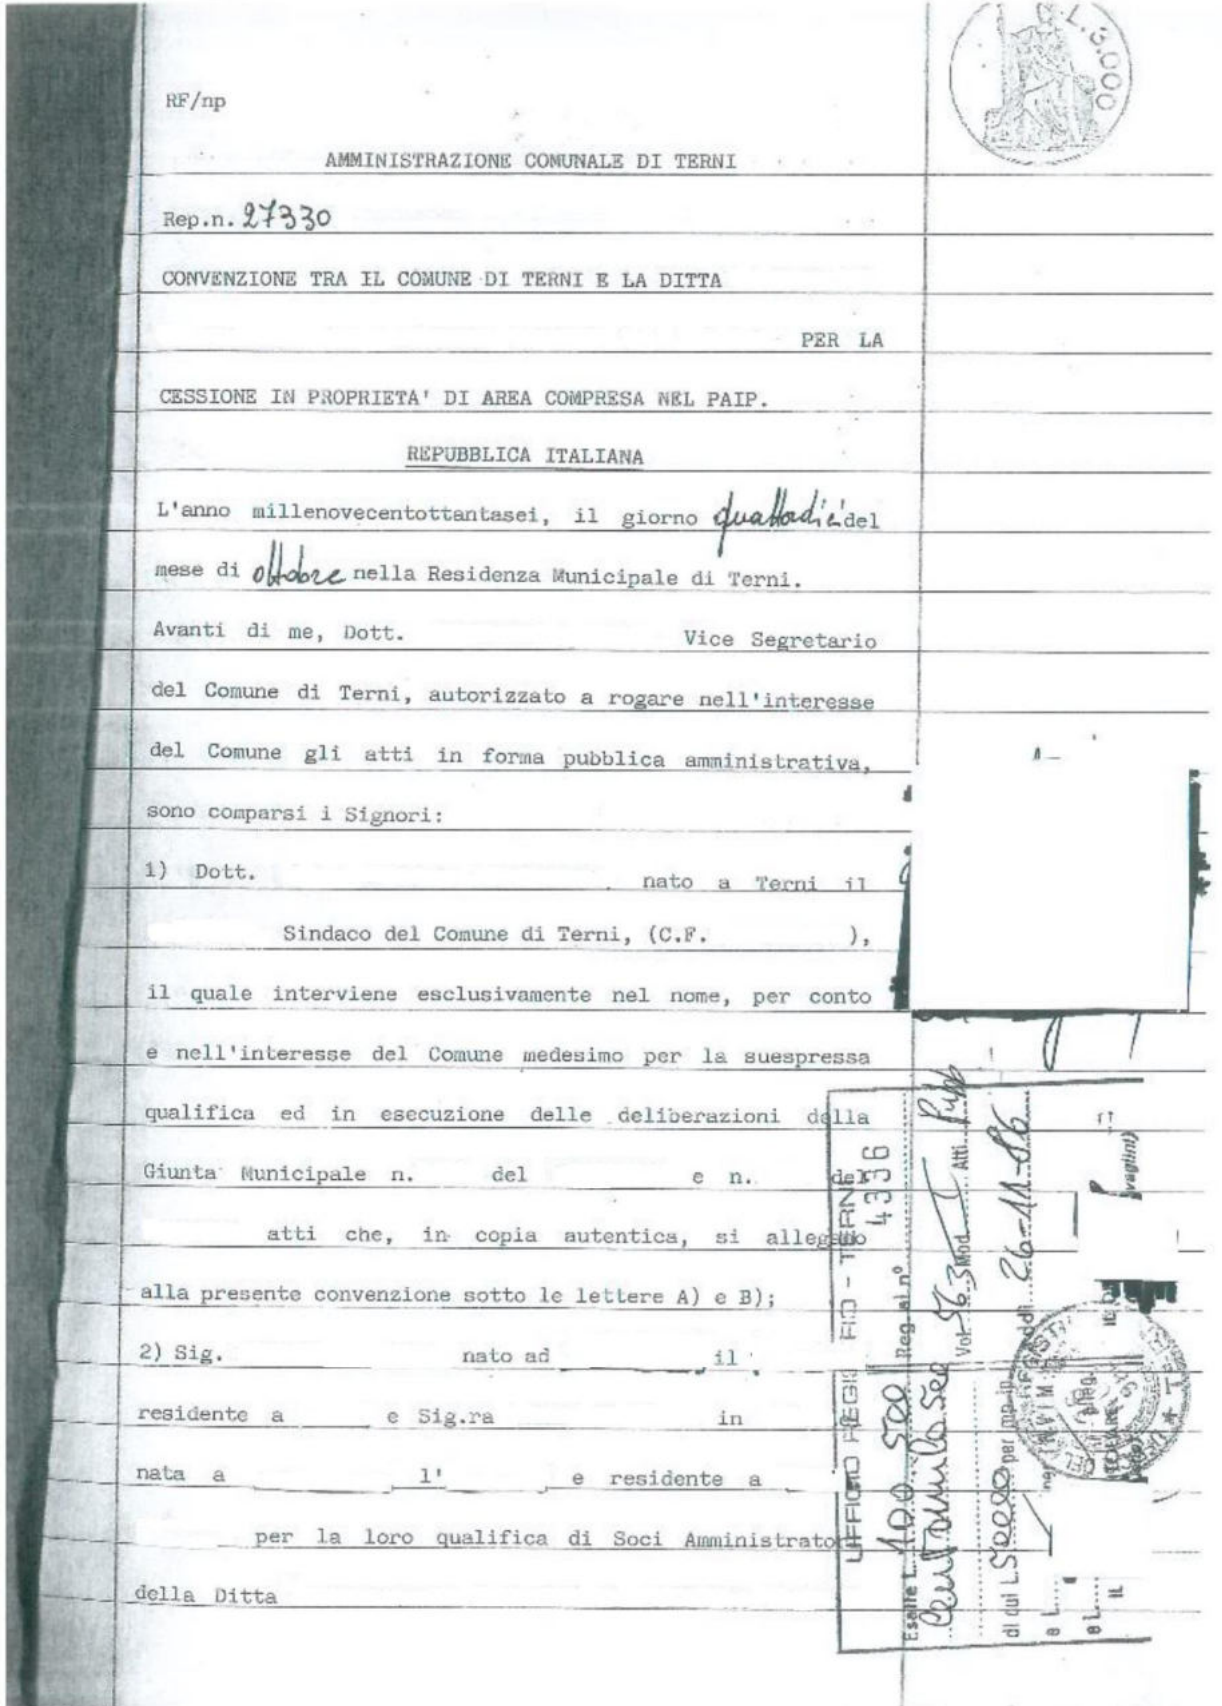 L.3.000
RF/np
AMMINISTRAZIONE COMUNALE DI TERNI
Rep.n. 27330
CONVENZIONE TRA IL COMUNE DI TERNI E LA DITTA
PER LA
CESSIONE IN PROPRIETA' DI AREA COMPRESA NEL PAIP.
REPUBBLICA ITALIANA
L'anno millenovecentottantasei, il giorno quattordici del
mese di ottobre nella Residenza Municipale di Terni.
Avanti di me, Dott. Vice Segretario
del Comune di Terni, autorizzato a rogare nell'interesse
del Comune gli atti in forma pubblica amministrativa,
sono comparsi i Signori:
1) Dott. nato a Terni il
Sindaco del Comune di Terni, (C.F. ),
il quale interviene esclusivamente nel nome, per conto
e nell'interesse del Comune medesimo per la suespressa
qualifica ed in esecuzione delle deliberazioni della
Giunta Municipale n. del e n. del
atti che, in copia autentica, si allegano
alla presente convenzione sotto le lettere A) e B);
2) Sig. nato ad il
residente a e Sig.ra in
nata a l' e residente a
per la loro qualifica di Soci Amministratori
della Ditta
UFFICIO REGIS - TERNI
4336
Reg. al n°
Vol. 563 Mod. I Atti Pubb
addì 26-11-86
Esatte L. 100.500
di cui L. 50000 per imp. in